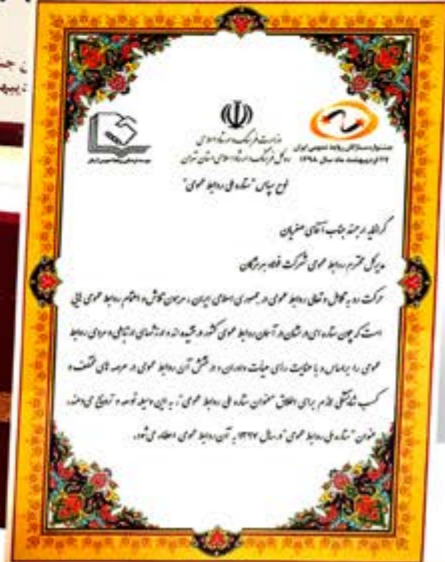 جشنواره ستارگان روابط عمومی ایران
۲۷ اردیبهشت ماه سال ۱۳۹۸
وزارت فرهنگ و ارشاد اسلامی
اداره کل فرهنگ و ارشاد اسلامی استان تهران
لوح سپاس "ستاره ملی روابط عمومی"
گرانمایه ارجمند جناب آقای صفریان
مدیرکل محترم روابط عمومی شرکت فولاد هرمزگان
حرکت رو به تکامل و تعالی روابط عمومی در جمهوری اسلامی ایران، مرهون تلاش و اهتمام روابط عمومی هایی
است که چون ستاره ای درخشان در آسمان روابط عمومی کشور درخشیده اند و ارزشهای ارتباطی و مردمی روابط
عمومی را براساس و با عنایت رای هیأت داوران و درخشش آن روابط عمومی در عرصه های مختلف و
کسب شایستگی لازم برای اطلاق "عنوان ستاره ملی روابط عمومی"، به این وسیله توسعه و ترویج می دهند،
عنوان "ستاره ملی روابط عمومی" در سال ۱۳۹۷ به آن روابط عمومی اعطاء می شود.